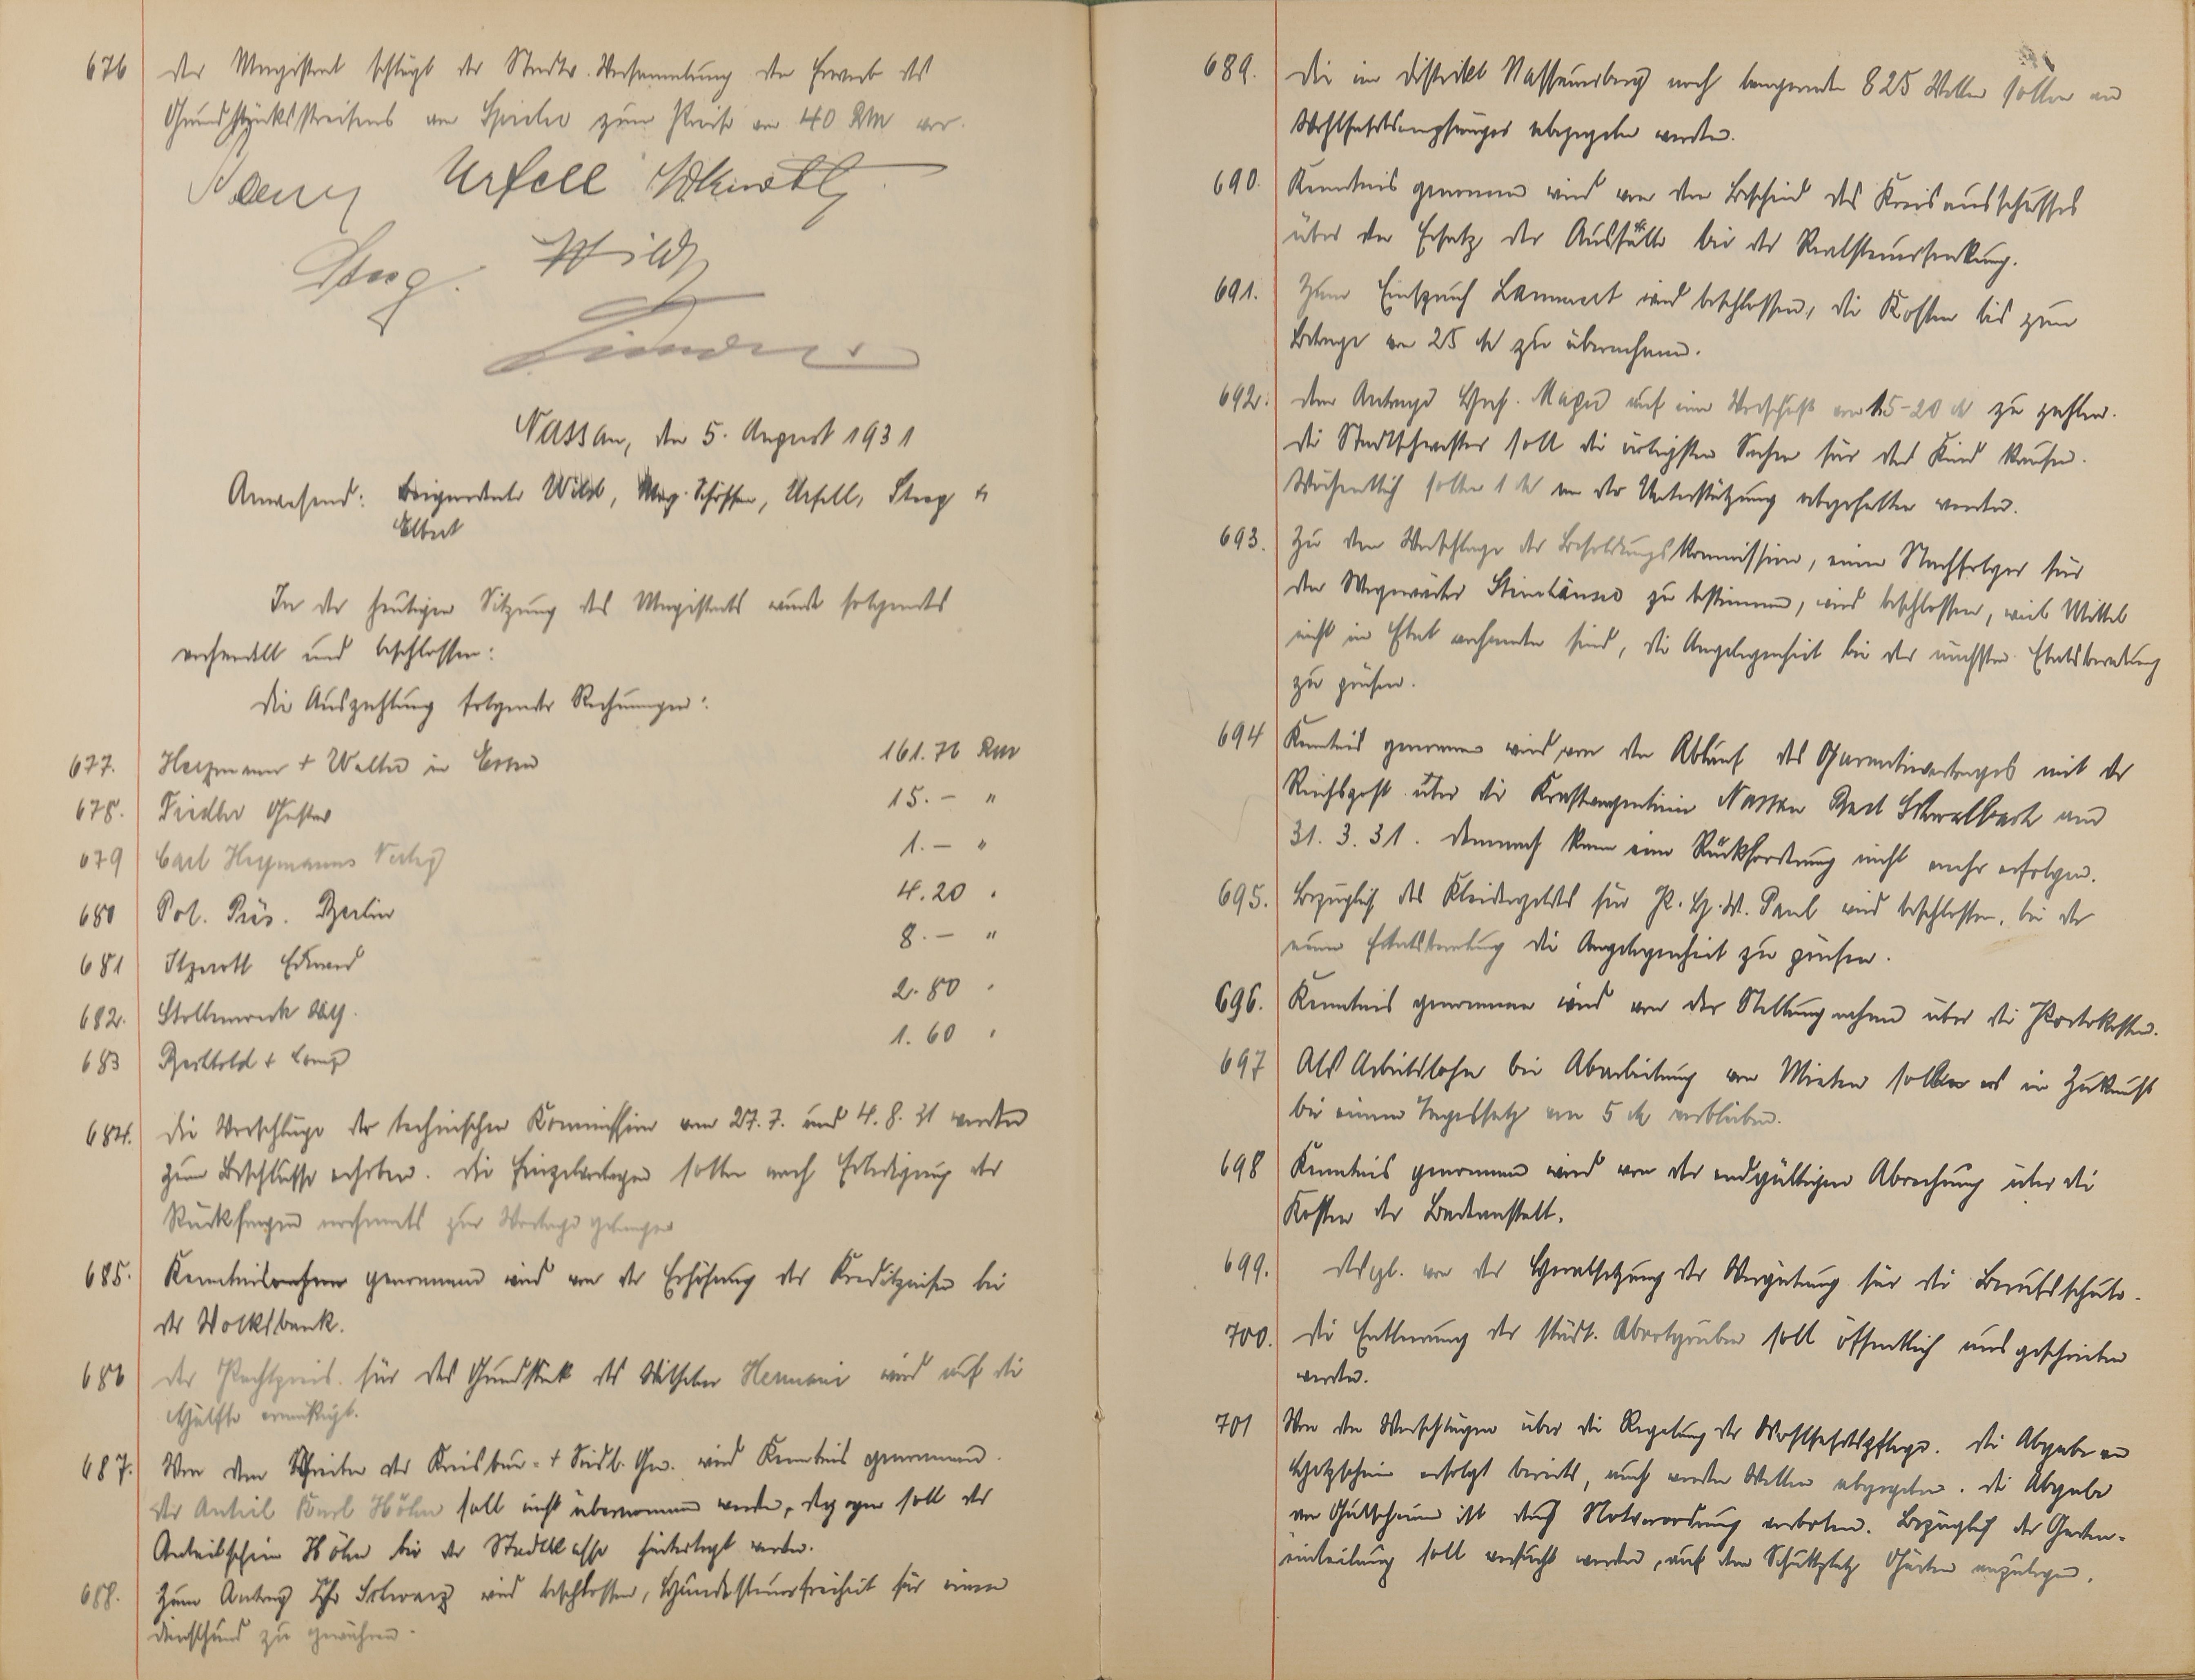 676 Der Magistrat schlägt der Stadtv. Versammlung den Erwerb des
Grundstücksstreifens am zum Preise von 40 RM vor.
Urfell
Steeg. Wild
Nassau, den 5. August 1931
Anwesend: Beigeordneter Wild, Mag. Schöffen, Urfell, Steeg +
Elbert
In der heutigen Sitzung des Magistrats wurde folgendes
verhandelt und beschlossen:
Die Auszahlung folgender Rechnungen:
677. + Walter in Essen 161.76 RM
678. Fiedler Gustav 15.– "
679 Carl Heymanns Verlag 1.– "
680 Pol. Präs. Berlin 4.20 "
681 Eduard 8.– "
682. Stollenwerk 2.80 "
683 Berthold + Comp 1.60 "
684. Die Vorschläge der technischen Kommission vom 27.7. und 4.8.31 werden
zum Beschlusse erhoben. Die Einzelvorlagen sollen nach Erledigung der
Rückfragen nochmals zur Vorlage gelangen
685. Kenntnis genommen wird von der Erhöhung der Kreditzinsen bei
der Volksbank.
686 Der Pachtpreis für das Grundstück des Wilhelm Hermani wird auf die
Hälfte ermäßigt.
687. Von dem Schreiben der Kreisbau- + Siedl. Gen. wird Kenntnis genommen.
Der Anteil Karl Höhn soll nicht übernommen werden, dagegen soll der
Anteilschein Höhn bei der Stadtkasse hinterlegt werden.
688. Zum Antrag Schwarz wird beschlossen, Hundesteuerfreiheit für einen
Diensthund zu gewähren.
689. Die im Distrikt Nassauerberg noch lagernden 825 Wellen sollen an
Wohlfahrtsempfänger abgegeben werden.
690. Kenntnis genommen wird von dem Bescheid des Kreisausschusses
über den Ersatz der Ausfälle bei der Realsteuersenkung.
691. Zum Einspruch Lammert wird beschlossen, die Kosten bis zum
Betrage von 25 M zu übernehmen.
692. Dem Antrage auf einen Vorschuß von 15-20 M zu zahlen.
Die Stadtschwester soll die nötigsten Sachen für das Kind kaufen.
Wöchentlich sollen 1 M von der Unterstützung abgehalten werden.
693. Zu dem Vorschlage der Besoldungskommission, einen Nachfolger für
den Wegewärter Steinhäuser zu bestimmen, wird beschlossen, weil Mittel
nicht im Etat vorhanden sind, die Angelegenheit bei der nächsten Etatsberatung
zu prüfen.
694 Kenntnis genommen wird von dem Ablauf des Garantievertrages mit der
Reichspost über die Kraftwagenlinie Nassau Bad Schwalbach am
31.3.31. Demnach kann eine Rückforderung nicht mehr erfolgen.
695. Bezüglich des Kleidergeldes für P. H. W. Paul wird beschlossen, bei der
neuen Etatsberatung die Angelegenheit zu prüfen.
696. Kenntnis genommen wird von der Stellungnahme über die Portokosten.
697 Als Arbeitslohn bei Abarbeitung von Mieten soll es in Zukunft
bei einem Tagessatz von 5 M verbleiben.
698 Kenntnis genommen wird von der endgültigen Abrechnung über die
Kosten der Badeanstalt.
699. Desgl. von der Herabsetzung der Vergütung für die Berufsschule.
700. Die Entleerung der städt. Abortgruben soll öffentlich ausgeschrieben
werden.
701 Von den Vorschlägen über die Regelung der Wohlfahrtspflege. Die Abgabe von
Holzscheinen erfolgt bereits, auch werden Wellen abgegeben. Die Abgabe
von Gutscheinen ist durch Notverordnung verboten. Bezüglich der Garten-
einteilung soll versucht werden, auf dem Schuttplatz Gärten anzulegen.